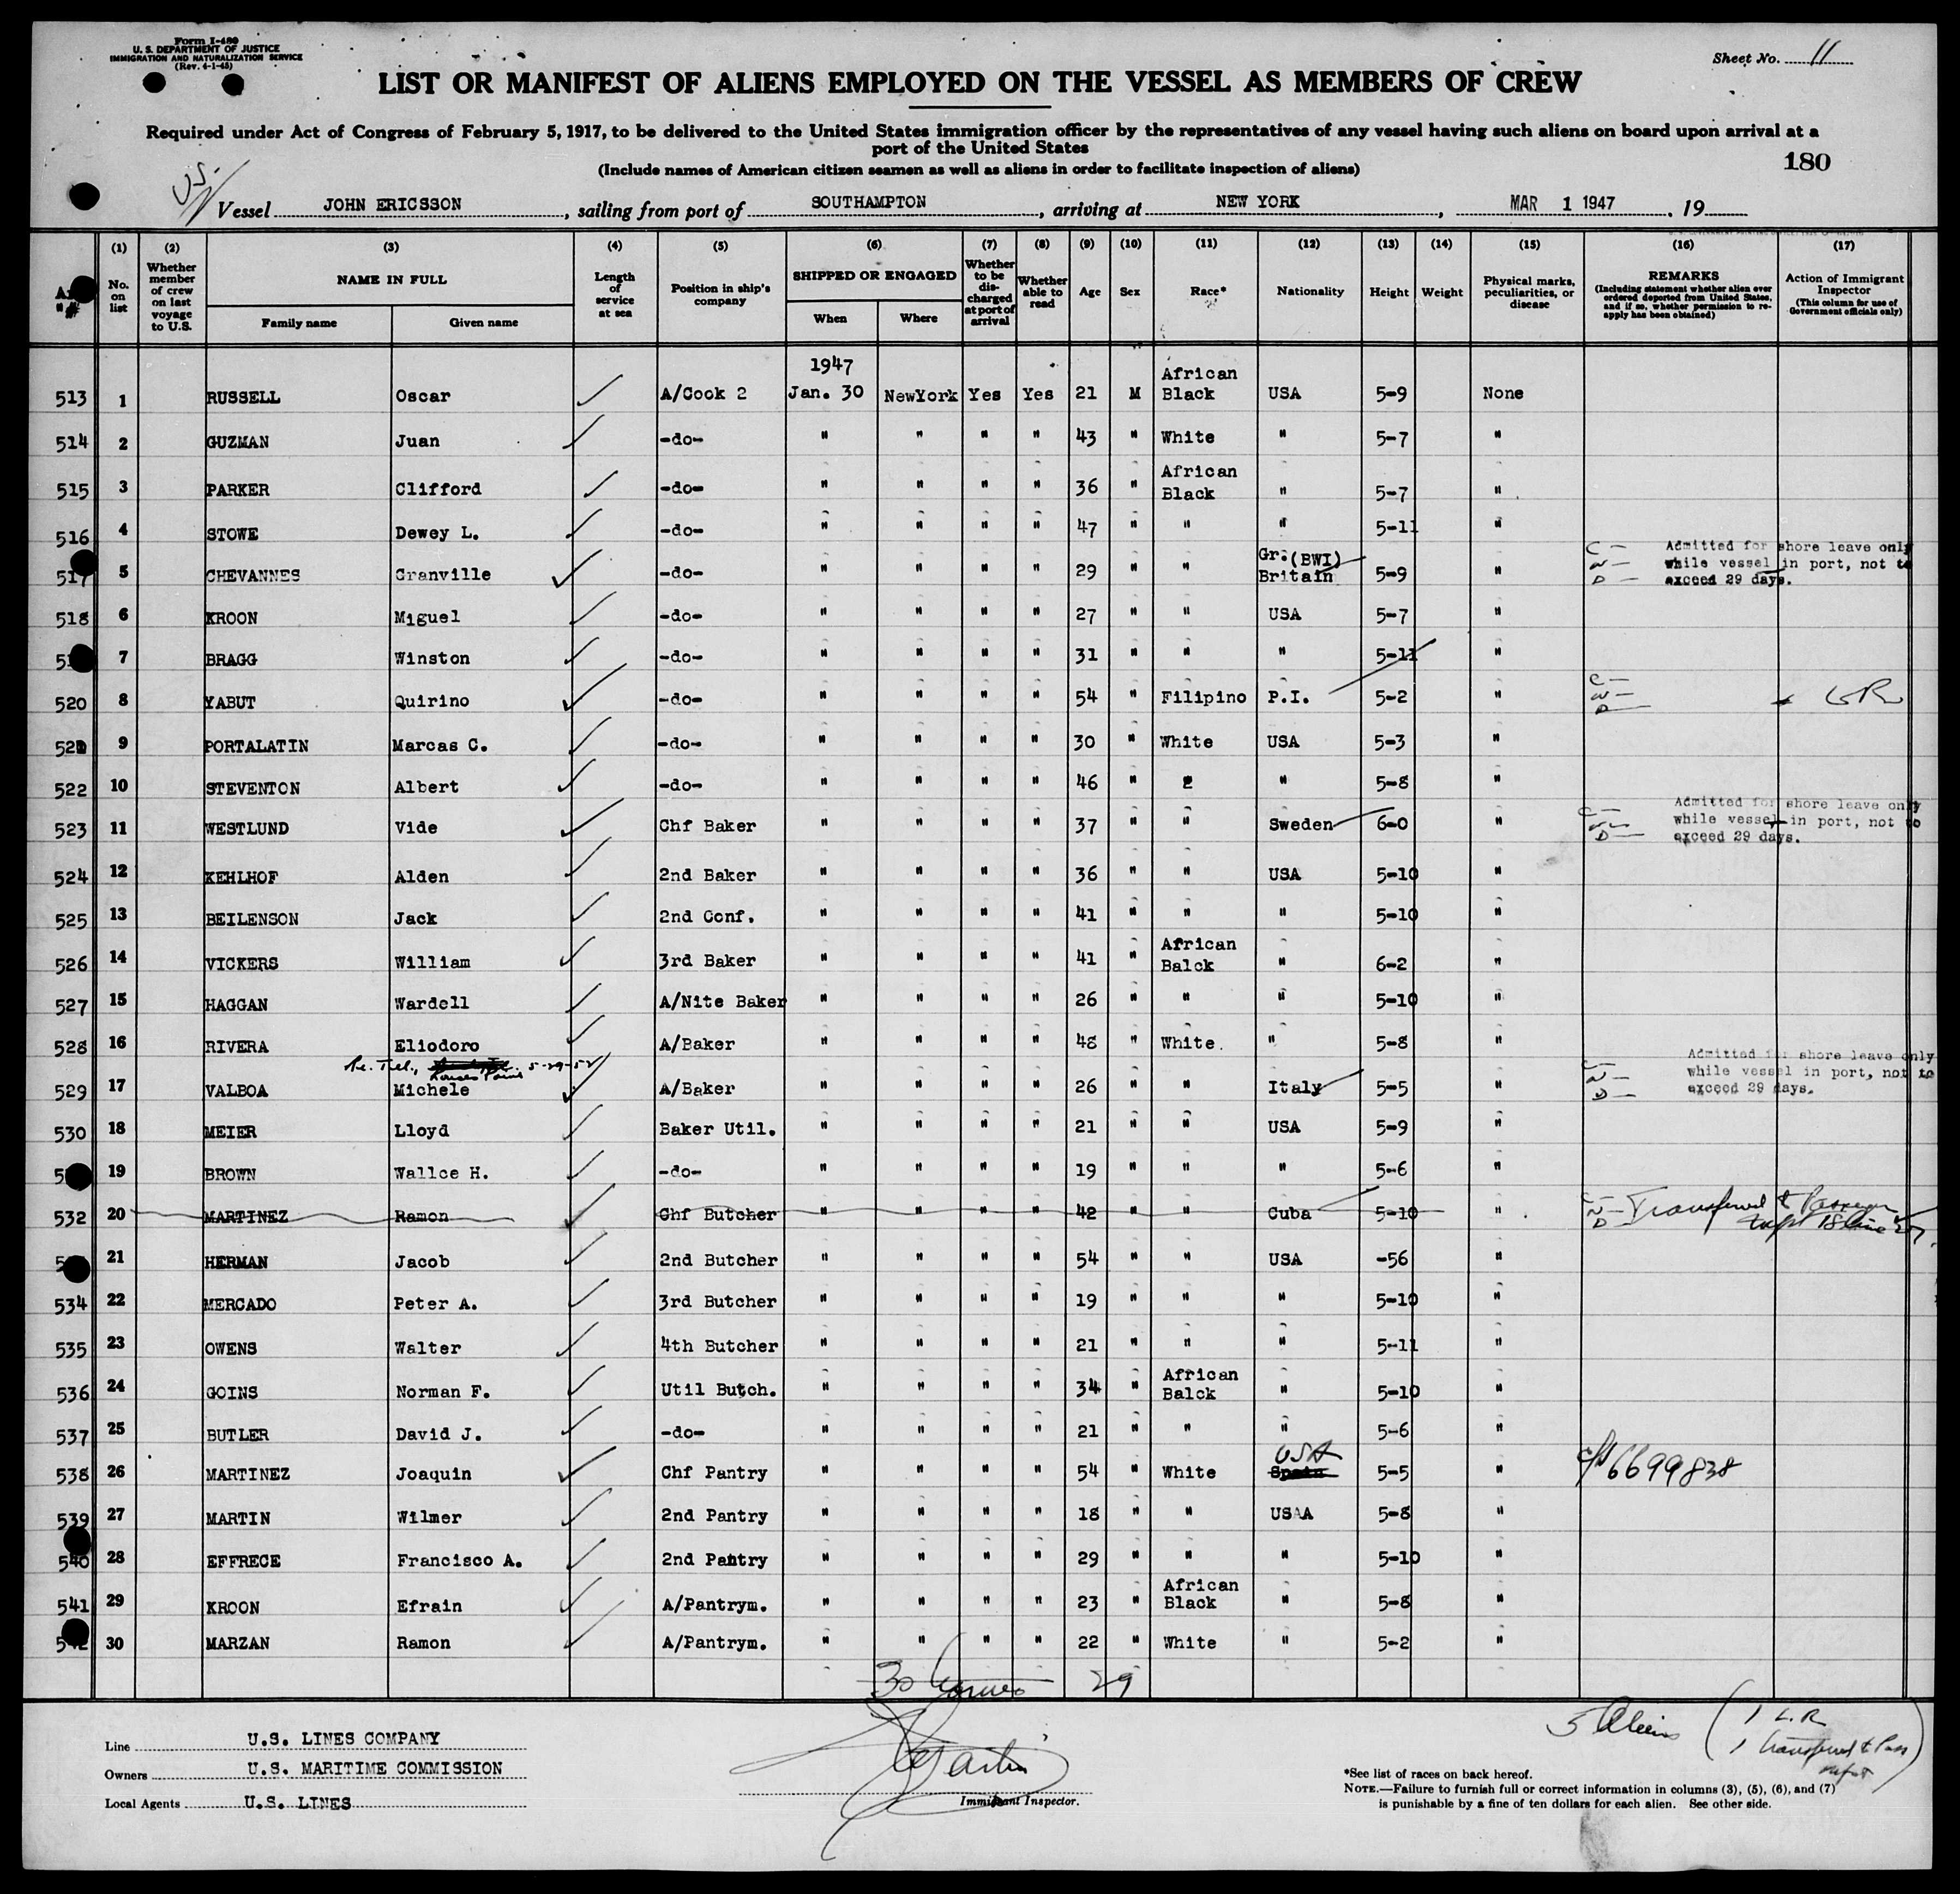 Form I-480
U. S. DEPARTMENT OF JUSTICE
IMMIGRATION AND NATURALIZATION SERVICE
(Rev. 4-1-45)
Sheet No. 11
LIST OR MANIFEST OF ALIENS EMPLOYED ON THE VESSEL AS MEMBERS OF CREW
Required under Act of Congress of February 5, 1917, to be delivered to the United States immigration officer by the representatives of any vessel having such aliens on board upon arrival at a
port of the United States
(Include names of American citizen seamen as well as aliens in order to facilitate inspection of aliens)
180
U.S.
Vessel JOHN ERICSSON, sailing from port of SOUTHAMPTON, arriving at NEW YORK, MAR 1 1947, 19
(1) (2) (3) (4) (5) (6) (7) (8) (9) (10) (11) (12) (13) (14) (15) (16) (17)
No. on list
Whether member of crew on last voyage to U.S.
NAME IN FULL
Family name Given name
Length of service at sea
Position in ship's company
SHIPPED OR ENGAGED
When Where
Whether to be discharged at port of arrival
Whether able to read
Age
Sex
Race*
Nationality
Height
Weight
Physical marks, peculiarities, or disease
REMARKS
(Including statement whether alien ever ordered deported from United States, and if so, whether permission to re-apply has been obtained)
Action of Immigrant Inspector
(This column for use of Government officials only)
1947
513 1 RUSSELL Oscar A/Cook 2 Jan. 30 NewYork Yes Yes 21 M African Black USA 5-9 None
514 2 GUZMAN Juan -do- " " " " 43 " White " 5-7 "
515 3 PARKER Clifford -do- " " " " 36 " African Black " 5-7 "
516 4 STOWE Dewey L. -do- " " " " 47 " " " 5-11 "
517 5 CHEVANNES Granville -do- " " " " 29 " " Gr. (BWI) Britain 5-9 " C — N — D — Admitted for shore leave only while vessel in port, not to exceed 29 days.
518 6 KROON Miguel -do- " " " " 27 " " USA 5-7 "
7 BRAGG Winston -do- " " " " 31 " " " 5-11 "
520 8 YABUT Quirino -do- " " " " 54 " Filipino P.I. 5-2 " C — N — D — LR
521 9 PORTALATIN Marcas C. -do- " " " " 30 " White USA 5-3 "
522 10 STEVENTON Albert -do- " " " " 46 " 2 " 5-8 "
523 11 WESTLUND Vide Chf Baker " " " " 37 " " Sweden 6-0 " C — N — D — Admitted for shore leave only while vessel in port, not to exceed 29 days.
524 12 KEHLHOF Alden 2nd Baker " " " " 36 " " USA 5-10 "
525 13 BEILENSON Jack 2nd Conf. " " " " 41 " " " 5-10 "
526 14 VICKERS William 3rd Baker " " " " 41 " African Balck " 6-2 "
527 15 HAGGAN Wardell A/Nite Baker " " " " 26 " " " 5-10 "
528 16 RIVERA Eliodoro A/Baker " " " " 48 " White. " 5-8 "
5-29-52
529 17 VALBOA Michele A/Baker " " " " 26 " " Italy 5-5 " C — N — D — Admitted for shore leave only while vessel in port, not to exceed 29 days.
530 18 MEIER Lloyd Baker Util. " " " " 21 " " USA 5-9 "
19 BROWN Wallce H. -do- " " " " 19 " " " 5-6 "
532 20 MARTINEZ Ramon Chf Butcher " " " " 42 " " Cuba 5-10 " C — N — D — Transferred to Passenger
21 HERMAN Jacob 2nd Butcher " " " " 54 " " USA -56 "
534 22 MERCADO Peter A. 3rd Butcher " " " " 19 " " " 5-10 "
535 23 OWENS Walter 4th Butcher " " " " 21 " " " 5-11 "
536 24 GOINS Norman F. Util Butch. " " " " 34 " African Balck " 5-10 "
537 25 BUTLER David J. -do- " " " " 21 " " " 5-6 "
538 26 MARTINEZ Joaquin Chf Pantry " " " " 54 " White Spain USA 5-5 " 6699838
539 27 MARTIN Wilmer 2nd Pantry " " " " 18 " " USAA 5-8 "
540 28 EFFRECE Francisco A. 2nd Pantry " " " " 29 " " " 5-10 "
541 29 KROON Efrain A/Pantrym. " " " " 23 " African Black " 5-8 "
542 30 MARZAN Ramon A/Pantrym. " " " " 22 " White " 5-2 "
30 29
5 Aliens (1 L.R
1 Transferred to Pass)
Line U.S. LINES COMPANY
Owners U.S. MARITIME COMMISSION
Local Agents U.S. LINES
Immigrant Inspector.
*See list of races on back hereof.
NOTE.—Failure to furnish full or correct information in columns (3), (5), (6), and (7)
is punishable by a fine of ten dollars for each alien. See other side.